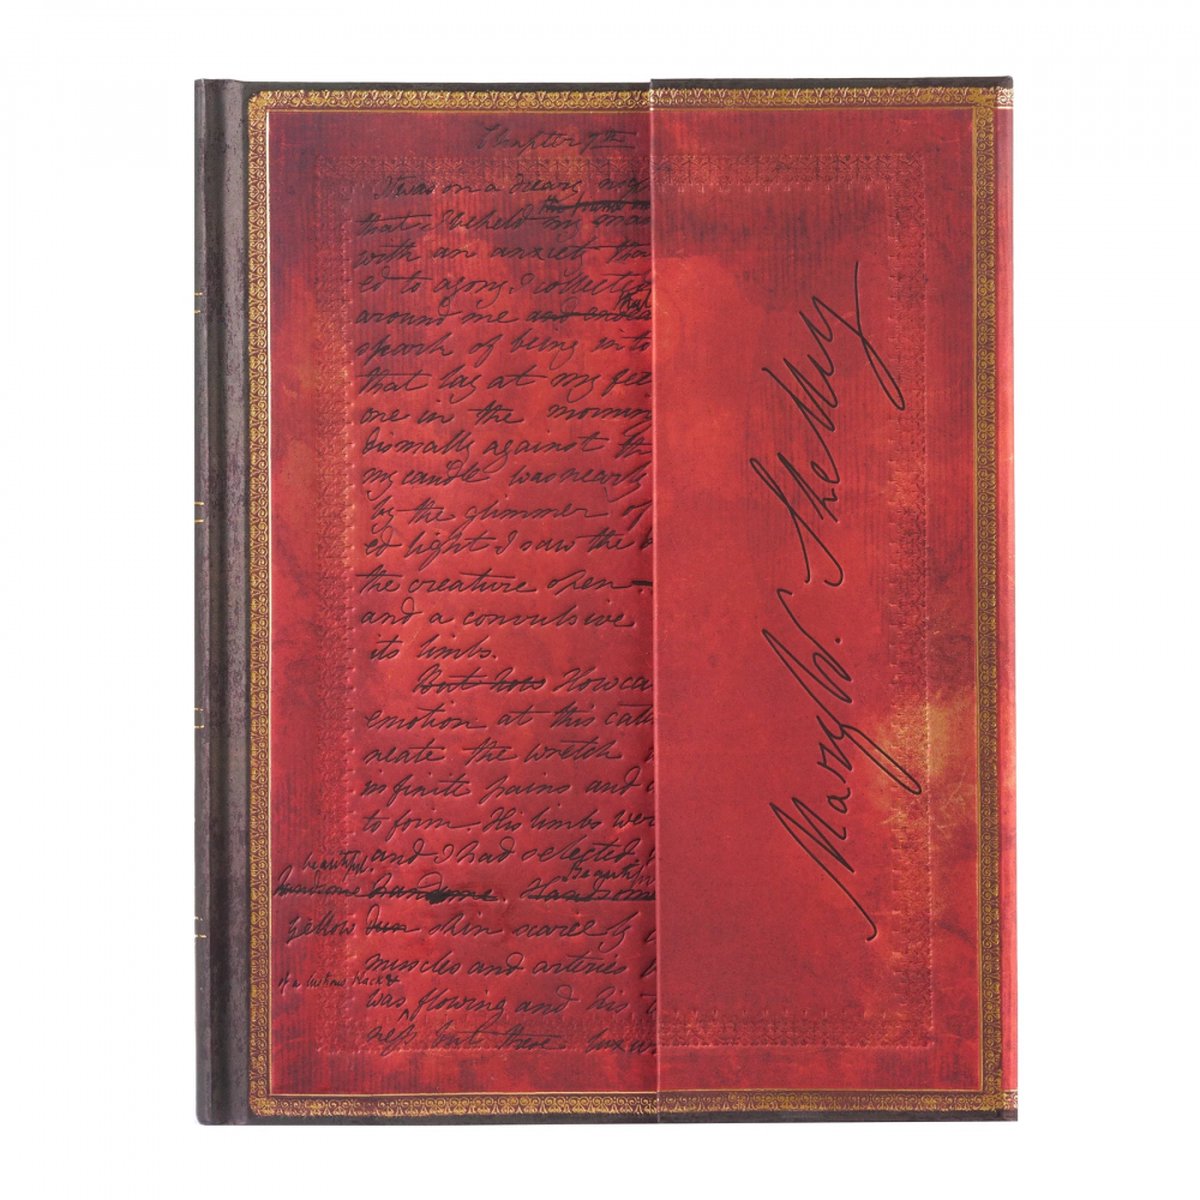 Chapter 7th
It was on a dreary nig
that I beheld my man
with an anxiety tha
ed to agony, I collected
around me and endea that
spark of being into
that lay at my fee
one in the mornin
dismally against th
my candle was nearly
by the glimmer of
ed light I saw the
the creature open
and a convulsive
its limbs.
But how How ca
emotion at this cat
neate the wretch
infinite pains and
to form. His limbs wer
and I had selected
beautiful. Beautif
handsome handsome. Handsome
yellow dun skin scarcely
muscles and arteries
of a lustrous black &
was flowing and his
ness but these luxu
Mary W. Shelley